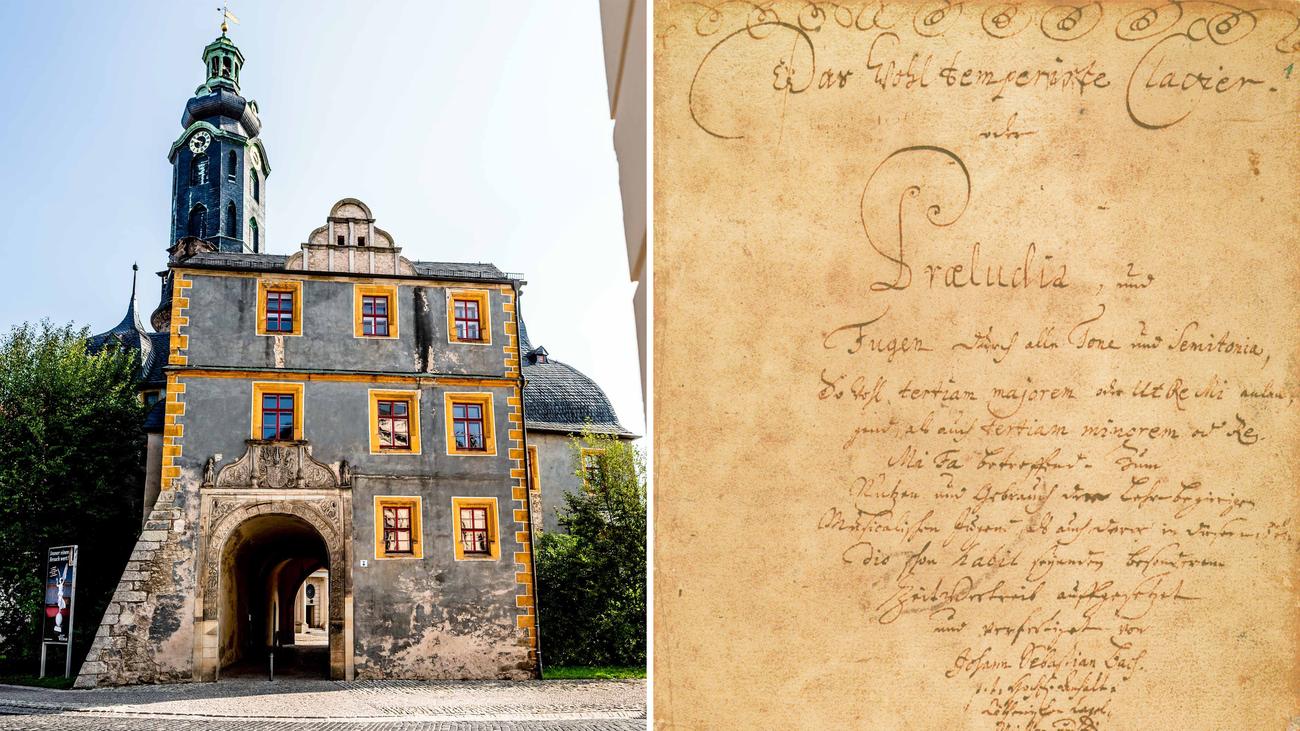 Immer einen
Besuch wert!
Das Wohl temperirte Clavier.
oder
Præludia, und
Fugen durch alle Tone und Semitonia,
So wohl tertiam majorem oder Ut Re Mi anlan-
gend, als auch tertiam minorem oder Re
Mi Fa betreffend. Zum
Nutzen und Gebrauch der Lehr-begierigen
Musicalischen Jugend, als auch derer in diesem stu-
dio schon habil seyenden besonderem
Zeitvertreib auffgesetzet
und verfertiget von
Johann Sebastian Bach.